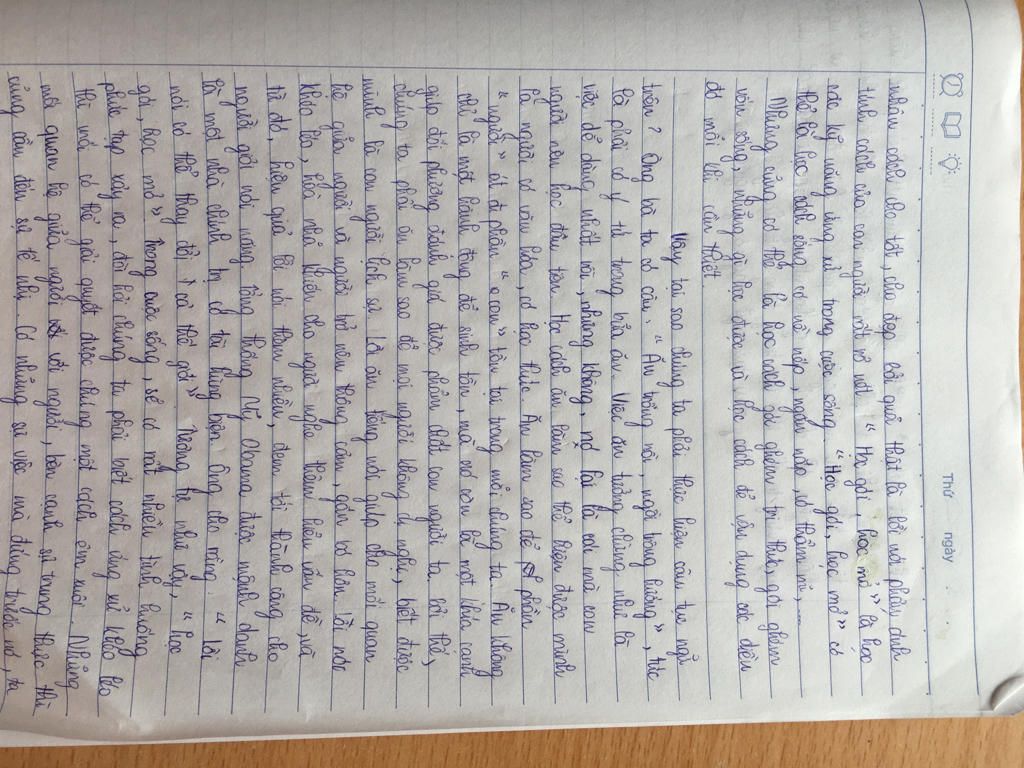 Thứ ngày
nhân cách cho tốt, cho đẹp. Bởi quả thật là lời nói phản ánh
tính cách của con người rất rõ nét. "Học gói, học mở" là học
các kỹ năng ứng xử trong cuộc sống. "Học gói, học mở" có
thể là học cách sống có nề nếp, ngăn nắp, có thẩm mĩ,...
Nhưng cũng có thể là học cách gói ghém tri thức, gói ghém
vốn sống, những gì học được và học cách để vận dụng các điều
đó mỗi khi cần thiết
Vậy tại sao chúng ta phải thực hiện câu tục ngữ
trên? Ông bà ta có câu: "Ăn trông nồi, ngồi trông hướng", tức
là phải có ý tứ trong bữa ăn. Việc ăn tưởng chừng như là
việc dễ dàng nhất rồi, nhưng không, nó lại là cái mà con
người nên học đầu tiên. Học cách ăn làm sao thể hiện được mình
là người có văn hóa, có học thức. Ăn làm sao để phần
"người" át đi phần "con" tồn tại trong mỗi chúng ta. Ăn không
chỉ là một hành động để sinh tồn, mà nó còn là một khía cạnh
giúp đối phương đánh giá được phẩm chất con người ta. Bởi thế,
chúng ta phải ăn làm sao để mọi người không dị nghị, biết được
mình là con người lịch sự. Lời ăn tiếng nói giúp cho mối quan
hệ giữa người và người trở nên thông cảm, gắn bó hơn. Lời nói
khéo léo, hòa nhã khiến cho người nghe thêm hiểu vấn đề, và
từ đó, hiệu quả lời nói tăng nhiều, đem tới thành công cho
người gởi nói năng. Tổng thống Mỹ Obama được mệnh danh
là một nhà chính trị có tài hùng biện. Ông cho rằng: "Lời
nói có thể thay đổi cả thế giới". Tương tự như vậy, "học
gói, học mở" Trong cuộc sống, sẽ có rất nhiều tình huống
phức tạp xảy ra, đòi hỏi chúng ta phải biết cách ứng xử khéo léo
thì mới có thể giải quyết được chúng một cách êm xuôi. Những
mối quan hệ giữa người với người, bên cạnh sự trung thực thì
cũng cần đến sự tế nhị. Có những sự việc mà đứng trước nó, ta